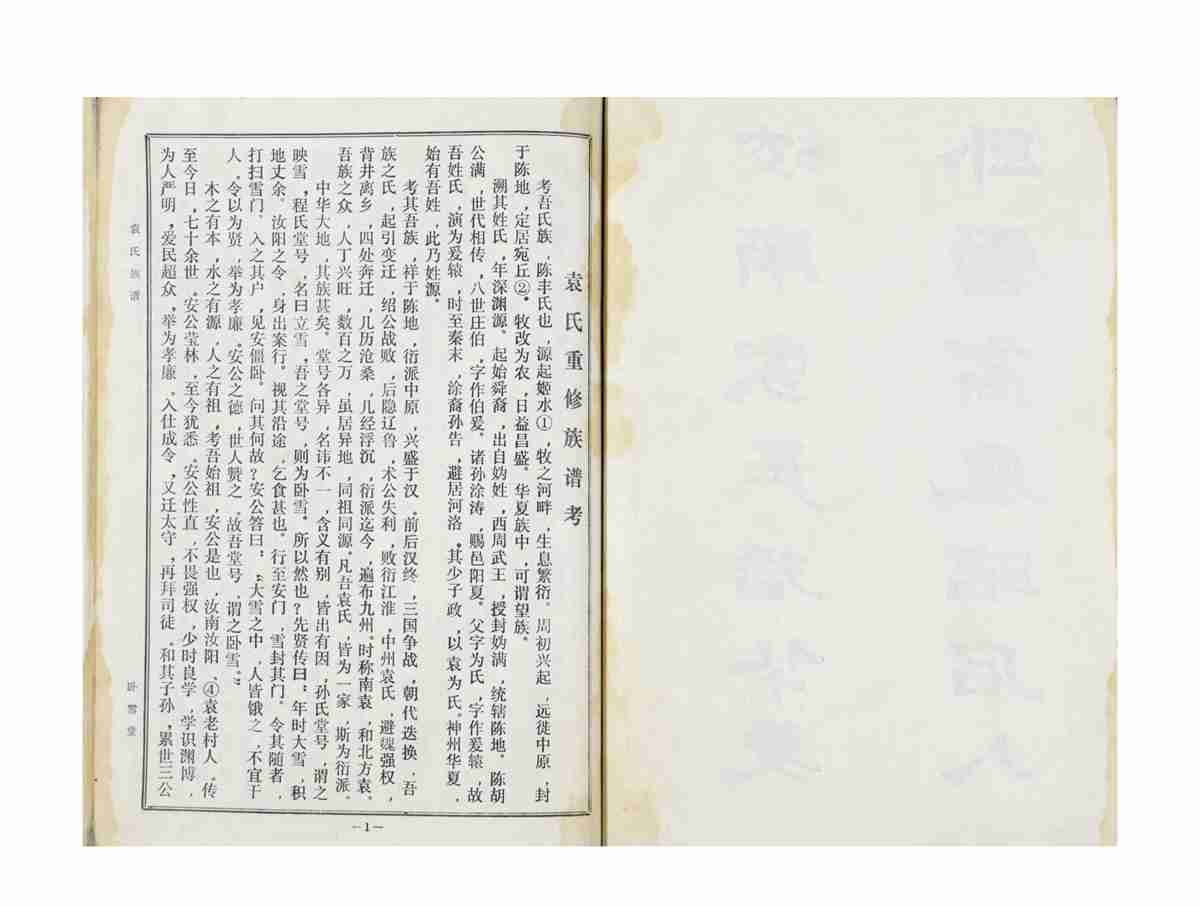 袁氏重修族谱考
考吾氏族，陈丰氏也，源起姬水①，牧之河畔，生息繁衍。周初兴起，远徙中原，封
于陈地，定居宛丘②。牧改为农，日益昌盛。华夏族中，可谓望族。
溯其姓氏，年深渊源。起始舜裔，出自妫姓，西周武王，授封妫满，统辖陈地。陈胡
公满，世代相传，八世庄伯，字作伯爰。诸孙涂涛，赐邑阳夏。父字为氏，字作爰辕，故
吾姓氏，演为爰辕，时至秦末，涂裔孙告，避居河洛。其少子政，以袁为氏。神州华夏，
始有吾姓，此乃姓源。
考其吾族，祥于陈地，衍派中原，兴盛于汉。前后汉终，三国争战，朝代迭换，吾
族之氏，起引变迁，绍公战败，后隐辽鲁，术公失利，败衍江淮，中州袁氏，避魏强权，
背井离乡，四处奔迁，几历沧桑，几经浮沉，衍派迄今，遍布九州。时称南袁，和北方袁。
吾族之众，人丁兴旺，数百之万，虽居异地，同祖同源。凡吾袁氏，皆为一家，斯为衍派。
中华大地，其族甚矣。堂号各异，名讳不一，含义有别，皆出有因，孙氏堂号，谓之
映雪，程氏堂号，名曰立雪，吾之堂号，则为卧雪。所以然也？先贤传曰：年时大雪，积
地丈余、汝阳之令，身出案行。视其沿途，乞食甚也。行至安门，雪封其门。令其随者，
打扫雪门、入之其户，见安僵卧。问其何故？安公答曰：“大雪之中，人皆饿之，不宜于
人。令以为贤，举为孝廉。安公之德，世人赞之。故吾堂号，谓之卧雪。”
木之有本，水之有源，人之有祖，考吾始祖，安公是也，汝南汝阳、④袁老村人。传
至今日，七十余世。安公莹林，至今犹悉。安公性直，不畏强权，少时良学，学识渊博，
为人严明，爱民超众，举为孝廉。入仕成令，又迁太守，再拜司徒。和其子孙，累世三公
袁氏族谱
卧雪堂
—1—